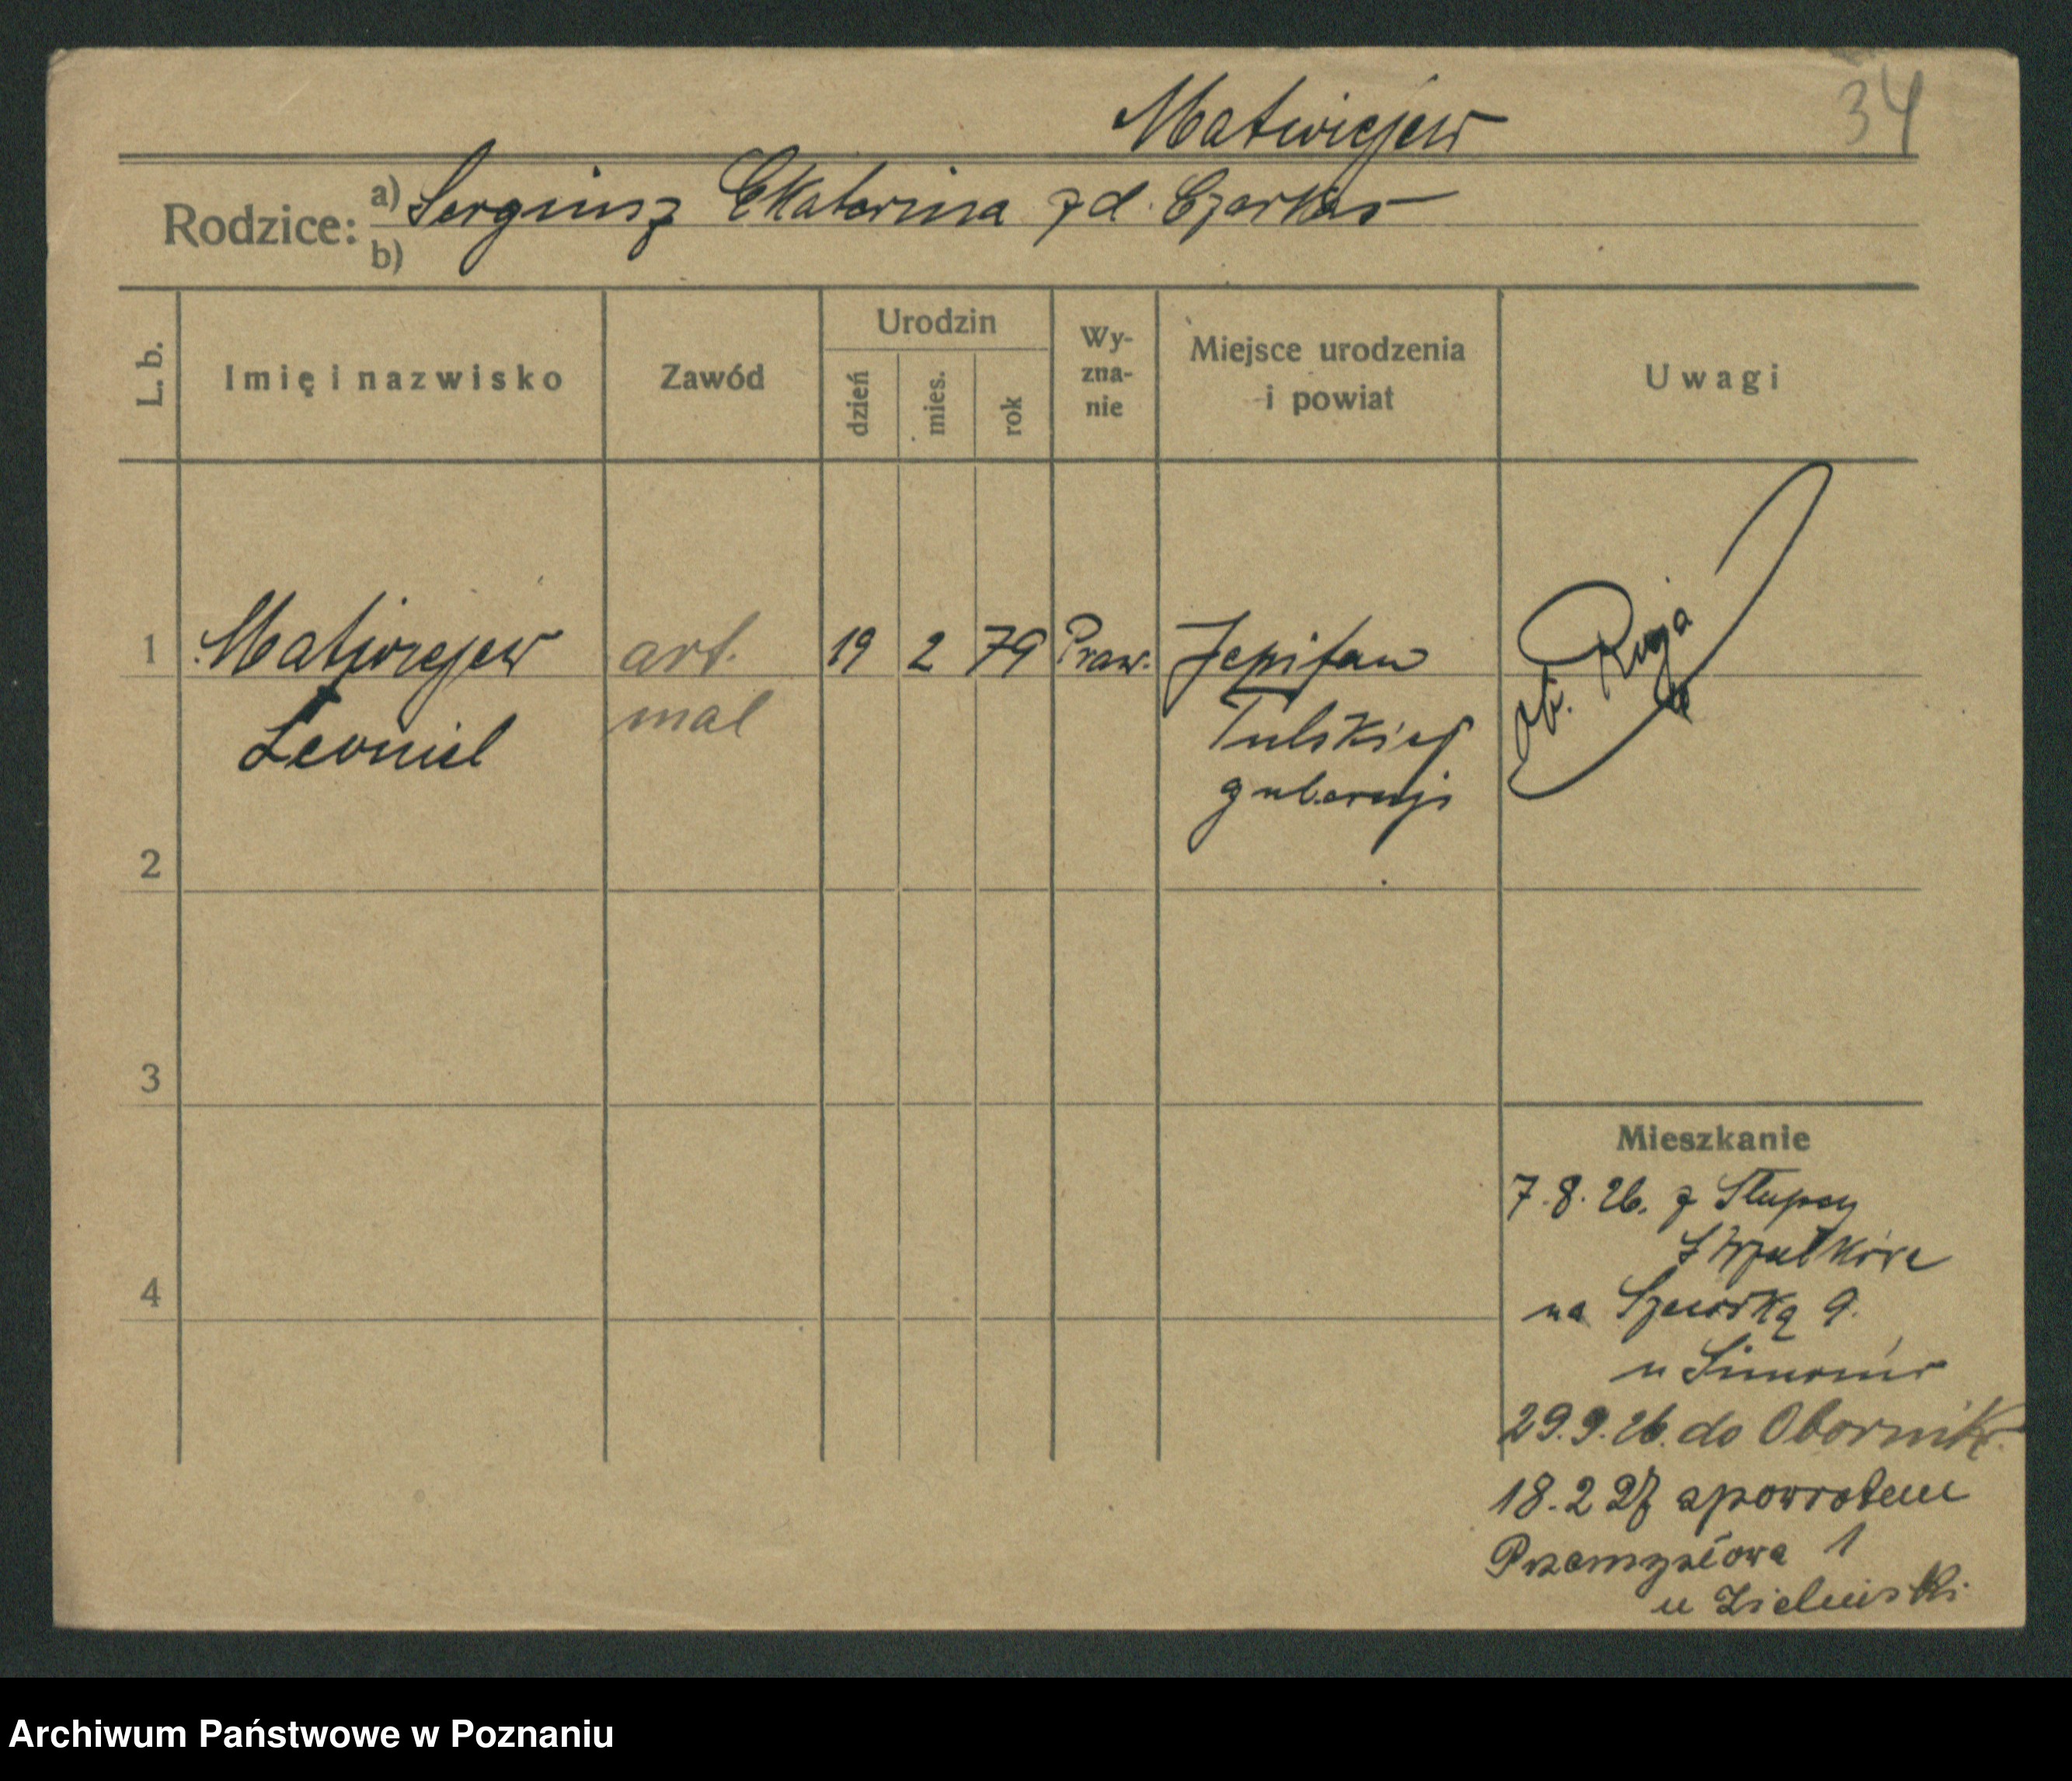 Matwiejew
34
Rodzice: a) Sergiusz Ekaterina z d. Czerkas
b)
L. b.
Imię i nazwisko
Zawód
Urodzin
dzień
mies.
rok
Wy-
zna-
nie
Miejsce urodzenia
i powiat
Uwagi
1 Matwiejew art. 19 2 79 Praw. Jepifan
Leonid mal Tulskiej
gubernji
ob. Rosja
2
3
4
Mieszkanie
7.8.26. z Słupcy
Strzałkowa
na Szewską 9.
u Simonów
29.9.26. do Obornik.
18.2 27 spowrotem
Przemysłowa 1
u Zielinski
Archiwum Państwowe w Poznaniu